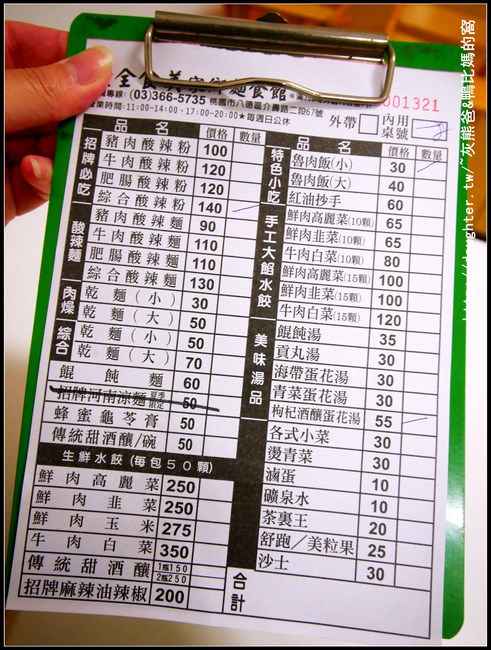 麵食館
專線:(03)366-5735 桃園市八德區介壽路二段67號
營業時間:11:00-14:00、17:00-20:00★每週日公休
001321
外帶 內用 桌號
品名 價格 數量
招牌必吃
豬肉酸辣粉 100
牛肉酸辣粉 120
肥腸酸辣粉 120
綜合酸辣粉 140
酸辣麵
豬肉酸辣麵 90
牛肉酸辣麵 110
肥腸酸辣麵 110
綜合酸辣麵 130
肉燥
乾麵(小) 30
乾麵(大) 50
綜合
乾麵(小) 50
乾麵(大) 70
餛飩麵 60
招牌河南涼麵 夏季限定 50
蜂蜜龜苓膏 50
傳統甜酒釀/碗 50
生鮮水餃(每包50顆)
鮮肉高麗菜 250
鮮肉韭菜 250
鮮肉玉米 275
牛肉白菜 350
傳統甜酒釀 1瓶150 2瓶250
招牌麻辣油辣椒 200
品名 價格 數量
特色小吃
魯肉飯(小) 30
魯肉飯(大) 40
紅油抄手 60
手工大餡水餃
鮮肉高麗菜(10顆) 65
鮮肉韭菜(10顆) 65
牛肉白菜(10顆) 80
鮮肉高麗菜(15顆) 100
鮮肉韭菜(15顆) 100
牛肉白菜(15顆) 120
美味湯品
餛飩湯 35
貢丸湯 30
海帶蛋花湯 30
青菜蛋花湯 30
枸杞酒釀蛋花湯 55
各式小菜 30
燙青菜 30
滷蛋 10
礦泉水 10
茶裏王 20
舒跑/美粒果 25
沙士 30
合計
http://daughter.tw/~灰熊爸&鴨比媽的窩